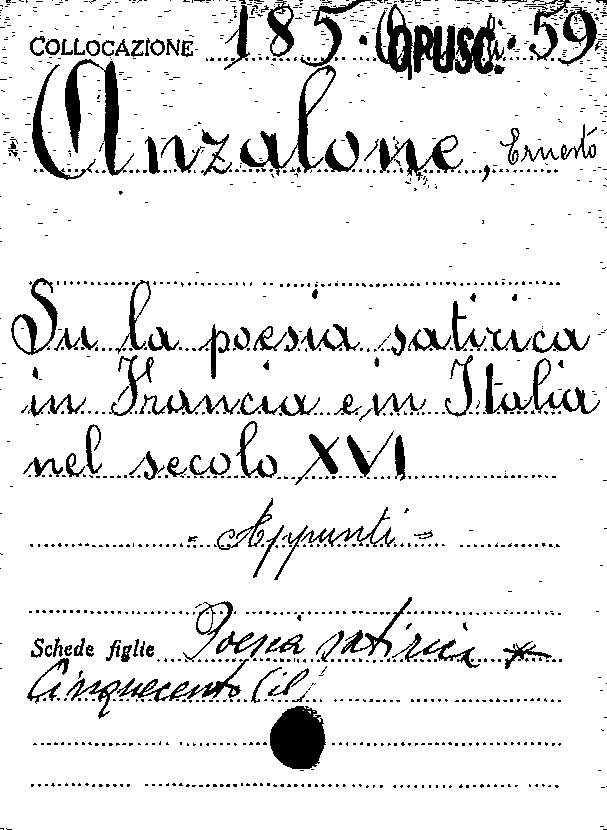 COLLOCAZIONE 185. OPUSC. 59
Anzalone, Ernesto
Su la poesia satirica
in Francia e in Italia
nel secolo XVI
- Appunti =
Schede figlie Poesia satirica *
Cinquecento (il)